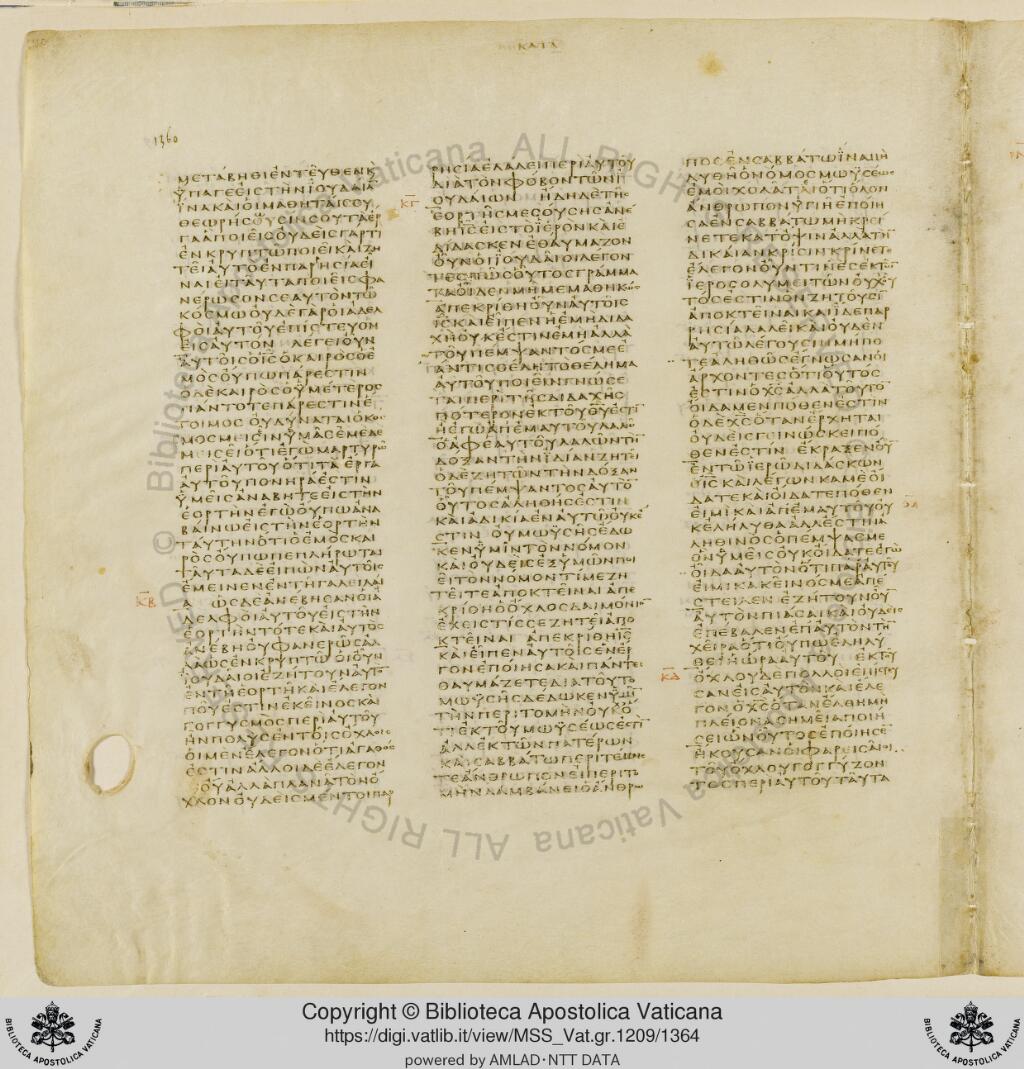 ΚΑΤΑ
1360
ΜΕΤΑΒΗΘΙΕΝΤΕΥΘΕΝΚ
ΥΠΑΓΕΕΙϹΤΗΝΙΟΥΔΑΙΑ̅
ΪΝΑΚΑΙΟΙΜΑΘΗΤΑΙϹΟΥ
ΘΕΩΡΗϹΟΥϹΙΝϹΟΥΤΑΕΡ
ΓΑΑΠΟΙΕΙϹΟΥΔΕΙϹΓΑΡΤΙ
ΕΝΚΡΥΠΤΩΠΟΙΕΙΚΑΙΖΗ
ΤΕΙΑΥΤΟΕΝΠΑΡΗϹΙΑΕΙ
ΝΑΙΕΙΤΑΥΤΑΠΟΙΕΙϹΦΑ
ΝΕΡΩϹΟΝϹΕΑΥΤΟΝΤΩ
ΚΟϹΜΩΟΥΔΕΓΑΡΟΙΑΔΕΛ
ΦΟΙΑΥΤΟΥΕΠΙϹΤΕΥΟΝ
ΕΙϹΑΥΤΟΝ ΛΕΓΕΙΟΥΝ
ΑΥΤΟΙϹΟΙϹ̅ΟΚΑΙΡΟϹΟΕ
ΜΟϹΟΥΠΩΠΑΡΕϹΤΙΝ
ΟΔΕΚΑΙΡΟϹΟΥΜΕΤΕΡΟϹ
ΠΑΝΤΟΤΕΠΑΡΕϹΤΙΝΕ
ΤΟΙΜΟϹΟΥΔΥΝΑΤΑΙΟΚΟϹ
ΜΟϹΜΕΙϹΕΙΝΥΜΑϹΕΜΕΔΕ
ΜΕΙϹΕΙΟΤΙΕΓΩΜΑΡΤΥΡΩ
ΠΕΡΙΑΥΤΟΥΟΤΙΤΑΕΡΓΑ
ΑΥΤΟΥΠΟΝΗΡΑΕϹΤΙΝ
ΥΜΕΙϹΑΝΑΒΗΤΕΕΙϹΤΗΝ
ΕΟΡΤΗΝΕΓΩΟΥΠΩΑΝΑ
ΒΑΙΝΩΕΙϹΤΗΝΕΟΡΤΗΝ
ΤΑΥΤΗΝΟΤΙΟΕΜΟϹΚΑΙ
ΡΟϹΟΥΠΩΠΕΠΛΗΡΩΤΑΙ
ΤΑΥΤΑΔΕΕΙΠΩΝΑΥΤΟΙϹ
ΕΜΕΙΝΕΝΕΝΤΗΓΑΛΕΙΛΑΙ
ΚΒ
Α ΩϹΔΕΑΝΕΒΗϹΑΝΟΙΑ
ΔΕΛΦΟΙΑΥΤΟΥΕΙϹΤΗΝ
ΕΟΡΤΗΝΤΟΤΕΚΑΙΑΥΤΟϹ
ΑΝΕΒΗΟΥΦΑΝΕΡΩϹΑΛ
ΛΑΩϹΕΝΚΡΥΠΤΩΟΙΟΥΝ
ΪΟΥΔΑΙΟΙΕΖΗΤΟΥΝΑΥΤΟ̅
ΕΝΤΗΕΟΡΤΗΚΑΙΕΛΕΓΟΝ
ΠΟΥΕϹΤΙΝΕΚΕΙΝΟϹΚΑΙ
ΓΟΓΓΥϹΜΟϹΠΕΡΙΑΥΤΟΥ
ΗΝΠΟΛΥϹΕΝΤΟΙϹΟΧΛΟΙϹ
ΟΙΜΕΝΕΛΕΓΟΝΟΤΙΑΓΑΘΟϹ
ΕϹΤΙΝΑΛΛΟΙΔΕΕΛΕΓΟΝ
ΟΥΑΛΛΑΠΛΑΝΑΤΟΝΟ
ΧΛΟΝΟΥΔΕΙϹΜΕΝΤΟΙΠΑΡ
ΡΗϹΙΑΕΛΑΛΕΙΠΕΡΙΑΥΤΟΥ
ΔΙΑΤΟΝΦΟΒΟΝΤΩΝΪ
ΚΓ
ΟΥΔΑΙΩΝ ΗΔΗΔΕΤΗϹ
ΕΟΡΤΗϹΜΕϹΟΥϹΗϹΑΝΕ
ΒΗΙϹ̅ΕΙϹΤΟΪΕΡΟΝΚΑΙΕ
ΔΙΔΑϹΚΕΝΕΘΑΥΜΑΖΟΝ
ΟΥΝΟΙΪΟΥΔΑΙΟΙΛΕΓΟΝ
ΤΕϹΠΩϹΟΥΤΟϹΓΡΑΜΜΑ
ΤΑΟΙΔΕΝΜΗΜΕΜΑΘΗΚΩϹ
ΑΠΕΚΡΙΘΗΟΥΝΑΥΤΟΙϹ
ΙϹ̅ΚΑΙΕΙΠΕΝΗΕΜΗΔΙΔΑ
ΧΗΟΥΚΕϹΤΙΝΕΜΗΑΛΛΑ
ΤΟΥΠΕΜΨΑΝΤΟϹΜΕΕ
ΑΝΤΙϹΘΕΛΗΤΟΘΕΛΗΜΑ
ΑΥΤΟΥΠΟΙΕΙΝΓΝΩϹΕ
ΤΑΙΠΕΡΙΤΗϹΔΙΔΑΧΗϹ
ΠΟΤΕΡΟΝΕΚΤΟΥΘΥ̅ΕϹΤΙ̅
ΗΕΓΩΑΠΕΜΑΥΤΟΥΛΑΛΩ
ΟΑΦΕΑΥΤΟΥΛΑΛΩΝΤΗ̅
ΔΟΞΑΝΤΗΝΪΔΙΑΝΖΗΤΕΙ
ΟΔΕΖΗΤΩΝΤΗΝΔΟΞΑΝ
ΤΟΥΠΕΜΨΑΝΤΟϹΑΥΤΟ̅
ΟΥΤΟϹΑΛΗΘΗϹΕϹΤΙΝ
ΚΑΙΑΔΙΚΙΑΕΝΑΥΤΩΟΥΚΕ
ϹΤΙΝ ΟΥΜΩΥϹΗϹΕΔΩ
ΚΕΝΥΜΙΝΤΟΝΝΟΜΟΝ
ΚΑΙΟΥΔΕΙϹΕΞΥΜΩΝΠΟΙ
ΕΙΤΟΝΝΟΜΟΝΤΙΜΕΖΗ
ΤΕΙΤΕΑΠΟΚΤΕΙΝΑΙΑΠΕ
ΚΡΙΘΗΟΟΧΛΟϹΔΑΙΜΟΝΙΟ̅
ΕΧΕΙϹΤΙϹϹΕΖΗΤΕΙΑΠΟ
ΚΤΕΙΝΑΙ ΑΠΕΚΡΙΘΗΙϹ̅
ΚΑΙΕΙΠΕΝΑΥΤΟΙϹΕΝΕΡ
ΓΟΝΕΠΟΙΗϹΑΚΑΙΠΑΝΤΕϹ
ΘΑΥΜΑΖΕΤΕΔΙΑΤΟΥΤΟ
ΜΩΥϹΗϹΔΕΔΩΚΕΝΥΜΙ̅
ΤΗΝΠΕΡΙΤΟΜΗΝΟΥΧΟ
ΤΙΕΚΤΟΥΜΩΥϹΕΩϹΕϹΤΙ̅
ΑΛΛΕΚΤΩΝΠΑΤΕΡΩΝ
ΚΑΙϹΑΒΒΑΤΩΠΕΡΙΤΕΜΝΕ
ΤΕΑΝΘΡΩΠΟΝΕΙΠΕΡΙΤΟ
ΜΗΝΛΑΜΒΑΝΕΙΟΑΝΘΡΩ
ΠΟϹΕΝϹΑΒΒΑΤΩΪΝΑΜΗ
ΛΥΘΗΟΝΟΜΟϹΜΩΥϹΕΩϹ
ΕΜΟΙΧΟΛΑΤΑΙΟΤΙΟΛΟΝ
ΑΝΘΡΩΠΟΝΥΓΙΗΕΠΟΙΗ
ϹΑΕΝϹΑΒΒΑΤΩΜΗΚΡΕΙ
ΝΕΤΕΚΑΤΟΨΙΝΑΛΛΑΤΗ̅
ΔΙΚΑΙΑΝΚΡΙϹΙΝΚΡΙΝΕΤΕ
ΕΛΕΓΟΝΟΥΝΤΙΝΕϹΕΚΤΩ̅
ΪΕΡΟϹΟΛΥΜΕΙΤΩΝΟΥΧΟΥ
ΤΟϹΕϹΤΙΝΟΝΖΗΤΟΥϹΙ̅
ΑΠΟΚΤΕΙΝΑΙΚΑΙΪΔΕΠΑΡ
ΡΗϹΙΑΛΑΛΕΙΚΑΙΟΥΔΕΝ
ΑΥΤΩΛΕΓΟΥϹΙΝΜΗΠΟ
ΤΕΑΛΗΘΩϹΕΓΝΩϹΑΝΟΙ
ΑΡΧΟΝΤΕϹΟΤΙΟΥΤΟϹ
ΕϹΤΙΝΟΧϹ̅ΑΛΛΑΤΟΥΤΟ̅
ΟΙΔΑΜΕΝΠΟΘΕΝΕϹΤΙΝ
ΟΔΕΧϹ̅ΟΤΑΝΕΡΧΗΤΑΙ
ΟΥΔΕΙϹΓΕΙΝΩϹΚΕΙΠΟ
ΘΕΝΕϹΤΙΝ ΕΚΡΑΞΕΝΟΥ̅
ΕΝΤΩΪΕΡΩΔΙΔΑϹΚΩΝ
ΟΙϹ̅ΚΑΙΛΕΓΩΝΚΑΜΕΟΙ
ΔΑΤΕΚΑΙΟΙΔΑΤΕΠΟΘΕΝ
ΕΙΜΙΚΑΙΑΠΕΜΑΥΤΟΥΟΥ
ΚΕΛΗΛΥΘΑΑΛΛΕϹΤΙΝΑ
ΛΗΘΙΝΟϹΟΠΕΜΨΑϹΜΕ
ΟΝΥΜΕΙϹΟΥΚΟΙΔΑΤΕΕΓΩ
ΟΙΔΑΑΥΤΟΝΟΤΙΠΑΡΑΥΤΟΥ
ΕΙΜΙΚΑΚΕΙΝΟϹΜΕΑΠΕ
ϹΤΕΙΛΕΝ ΕΖΗΤΟΥΝΟΥ̅
ΑΥΤΟΝΠΙΑϹΑΙΚΑΙΟΥΔΕΙϹ
ΕΠΕΒΑΛΕΝΕΠΑΥΤΟΝΤΗ̅
ΧΕΙΡΑΟΤΙΟΥΠΩΕΛΗΛΥ
ΘΕΙΗΩΡΑΑΥΤΟΥ ΕΚΤΟΥ
ΚΔ
ΟΧΛΟΥΔΕΠΟΛΛΟΙΕΠΙϹΤΕΥ
ϹΑΝΕΙϹΑΥΤΟΝΚΑΙΕΛΕ
ΓΟΝΟΧϹ̅ΟΤΑΝΕΛΘΗΜΗ
ΠΛΕΙΟΝΑϹΗΜΕΙΑΠΟΙΗ
ϹΕΙΩΝΟΥΤΟϹΕΠΟΙΗϹΕ̅
ΗΚΟΥϹΑΝΟΙΦΑΡΕΙϹΑΙΟΙ
ΤΟΥΟΧΛΟΥΓΟΓΓΥΖΟΝ
ΤΟϹΠΕΡΙΑΥΤΟΥΤΑΥΤΑ
Copyright © Biblioteca Apostolica Vaticana
https://digi.vatlib.it/view/MSS_Vat.gr.1209/1364
powered by AMLAD·NTT DATA
BIBLIOTECA APOSTOLICA VATICANA
BIBLIOTECA APOSTOLICA VATICANA